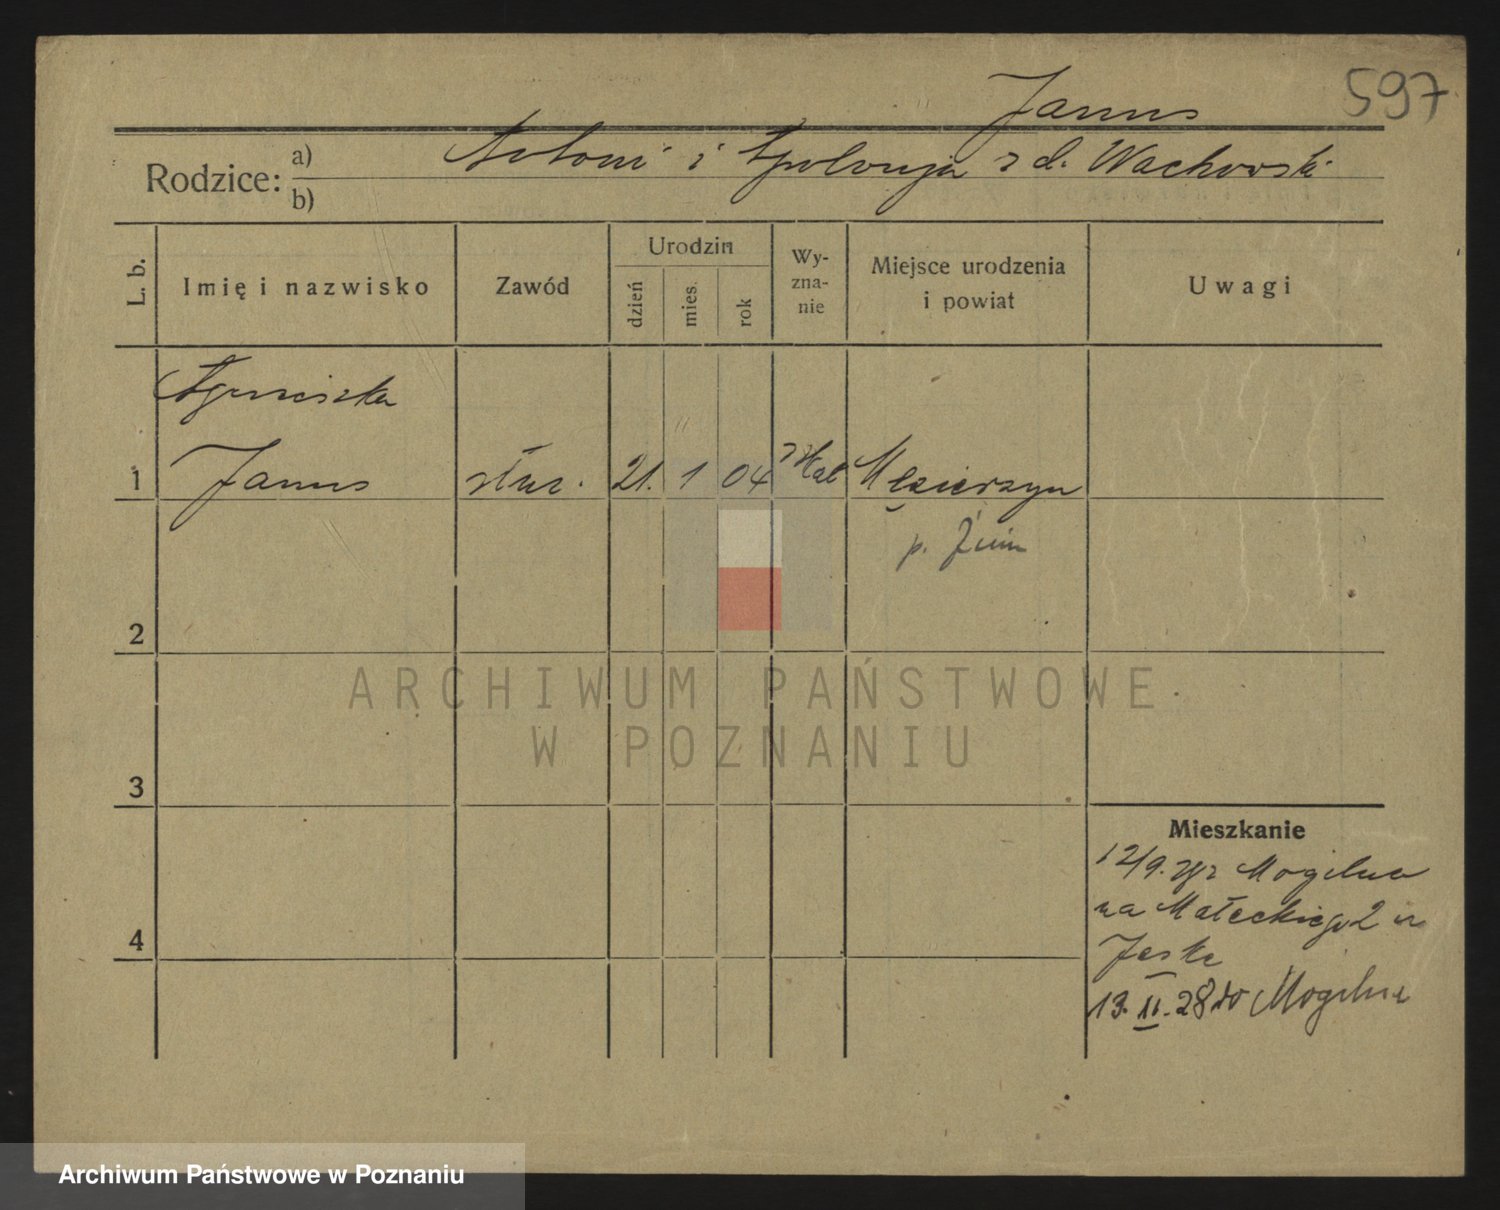 597
Janus
Antoni i Apolonja z d. Wachowski
Rodzice: a)
b)
L. b.
Imię i nazwisko
Zawód
Urodzin
dzień
mies.
rok
Wy-
zna-
nie
Miejsce urodzenia
i powiat
Uwagi
Agnieszka
1 Janus służ. 21. 1 04 rz kat
p. Żnin
2
3
4
Mieszkanie
12/9. 27 z Mogilna
na Małeckiego 2 u
Jeske
13. II. 28 do Mogilna
ARCHIWUM PAŃSTWOWE
W POZNANIU
Archiwum Państwowe w Poznaniu